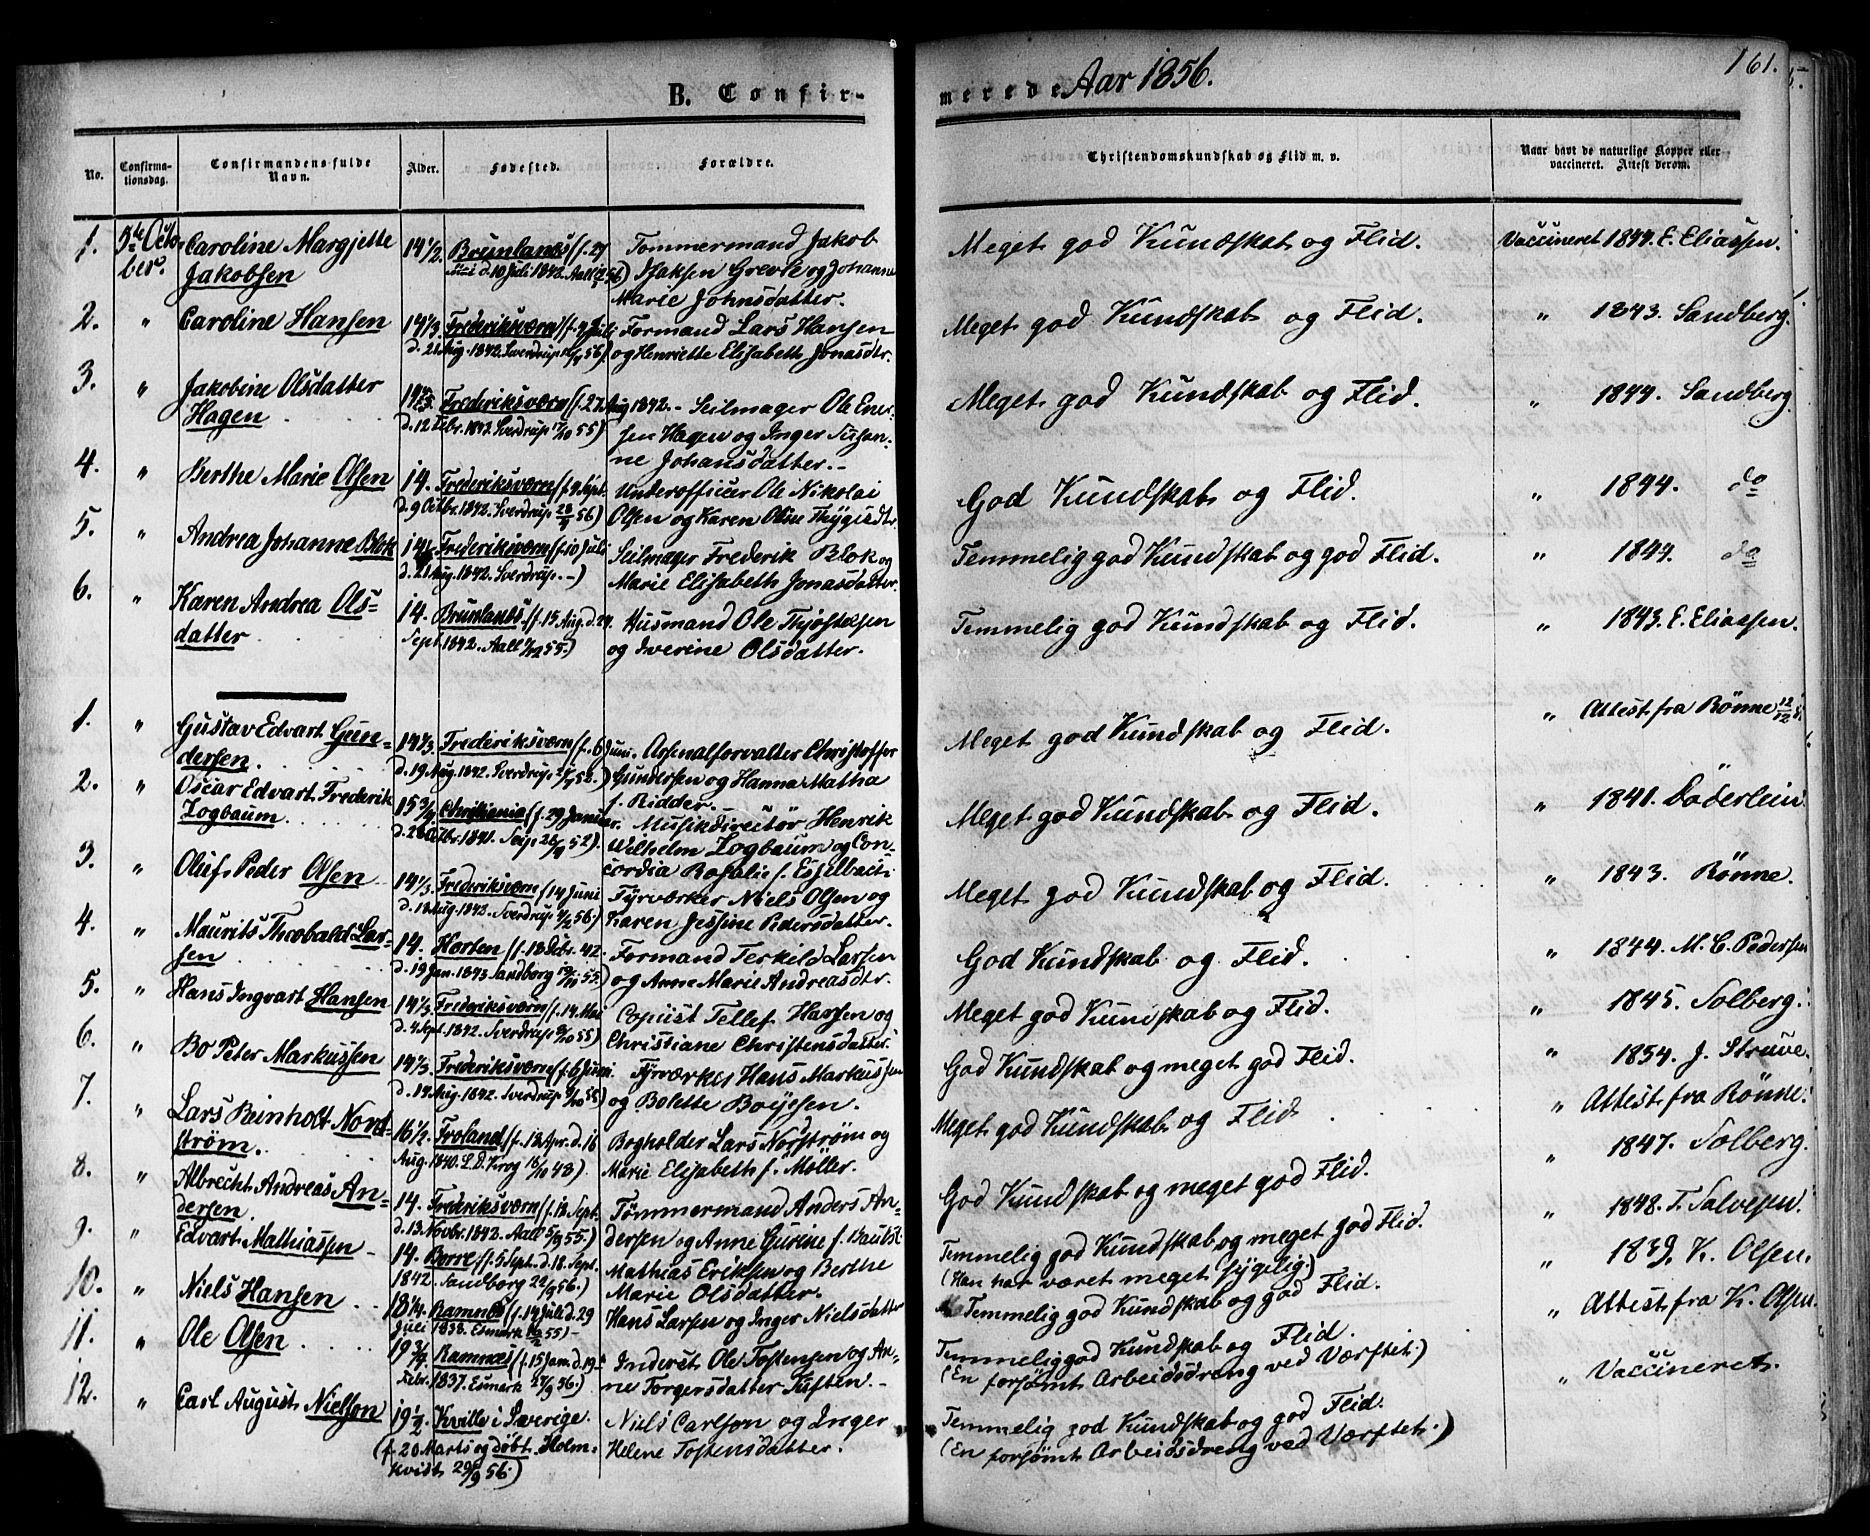 161.
B. Confir-
merede Aar 1856.
No.
Confirma-
tionsdag.
Confirmandens fulde
Navn.
Alder.
Fødested.
Forældre.
Christendomskundskab og Flid m. v.
Naar havt de naturlige Kopper eller
vaccineret. Attest derom.
1. 5te Octo- Caroline Margjette 14 1/2. Brunlanæs (f. 27 Tommermand Jakob Meget god Kundskab og Flid. Vaccineret 1844. E. Eliassen.
ber. Jakobsen d. 10 Juli 1842. Aall 56) Grevle og Johanne
Marie Johnsdatter.
2. " Caroline Hansen 14 1/3 Frederiksværn (f. 9 Juli Formand Lars Hansen Meget god Kundskab og Flid. " 1843. Sandberg.
d. 21 Aug. 1842. Sverdrup 56) og Henriette Elisabeth Jonasdtr.
3. " Jakobine Olsdatter Frederiksværn (f. 27 Aug 1842. - Seilmager Ole Ener- Meget god Kundskab og Flid. " 1844. Sandberg
Hagen d. 12 Febr. 1843. Sverdrup 17/10 55) sen Hagen og Inger Susan-
ne Johansdatter. -
4. " Berthe Marie Olsen 14. Frederiksværn (f. 9 Sept. Underofficer Ole Nikolai God Kundskab og Flid. " 1844. do
d. 9 Octbr. 1842. Sverdrup 56) Olsen og Karen Oline Thygesdtr.
5. " Andrea Johanne Blok Frederiksværn (f. 10 Juli Seilmager Frederik Blok og Temmelig god Kundskab og god Flid. " 1844. do
d. 21 Aug. 1842. Sverdrup. -) Marie Elisabeth Jonasdatter.
6. " Karen Andrea Ols- 14. Brunlanæs (f. 15 Aug. d. 24. Husmand Ole Thjøstelsen Temmelig god Kundskab og Flid. " 1843. E. Eliassen.
datter Sept. 1842. Aall 55.) og Iverine Olsdatter.
1. " Gustav Edvart Gun- 14 1/3. Frederiksværn (f. 6 Juni. Arsenalforvalter Christoffer Meget god Kundskab og Flid. " Attest fra Rönne
dersen. d. 19 Aug. 1842. Sverdrup 52.) Gundersen og Hanna Matha
f. Ridder.
2. " Oscar Edvart Frederik 15 3/4 Christiania (f. 29 Januar. Musikdirectør Henrik Meget god Kundskab og Flid. " 1841. Döderlein
Zogbaum. 1841. Seip 52). Wilhelm Zogbaum og Con-
cordia Rosalie f. Esselbach
3. " Oluf Peder Olsen 14 1/3. Frederiksværn (14 Juni Fyrværker Niels Olsen og Meget god Kundskab og Flid. " 1843. Rönne.
d. 18 Aug. 1842. Sverdrup 56.) Karen Jessine Pedersdatter.
4. " Maurits Theobald Lar- 14. Horten (f. 18 Debr. 42. Formand Terkild Larsen God Kundskab og Flid. " 1844. M. C. Pedersen
sen d. 19 Jan. 1843. Sandberg 55) og Anne Marie Andreasdtr.
5. " Hans Ingvart Hansen 14 1/3 Frederiksværn (f. 14. Mai Copiist Tellef Hansen og Meget god Kundskab og Flid. " 1845. Solberg.
d. 4 Sept. 1842. Sverdrup 55) Christiane Christensdatter.
6. " Bo Peter Markussen 14 1/3. Frederiksværn (f. 6 Juni. Fyrværker Hans Markussen God Kundskab og meget god Flid. " 1854. J. Struve.
d. 14 Aug. 1842. Sverdrup 55) og Bolette Boyesen.
7. " Lars Reinholt Nord- 16 1/2. Froland (f. 12 Apr. d. 16 Bogholder Lars Norström og Meget god Kundskab og Flid " Attest fra Rönne.
ström. Aug. 1840. L. D. Krog 16/10 48). Marie Elisabeth f. Möller.
8. " Albrecht Andreas An- 14. Frederiksværn (f. 12. Sept. Tømmermand Anders An- God Kundskab og meget god Flid. " 1847. Solberg.
dersen d. 13. Novbr. 1842. Aall 55.) dersen og Anne Gurine f.
9. " Edvart Mathiassen 14. Borre (f. 5 Sept. d. 18. Sept. Mathias Eriksen og Berthe Temmelig god Kundskab og meget god Flid. " 1848. T. Salvesen.
1842. Sandborg 22/9 56.) Marie Olsdatter. (Han har været meget sygelig.)
10. " Niels Hansen 18 1/4. Ramnæs (f. 14 Juli d. 29 Hans Larsen og Inger Nielsdatter Temmelig god Kundskab og god Flid. " 1839. K. Olsen.
Juli 1838. Esmark 55) -
11. " Ole Olsen 19 3/4. Ramnæs (f. 15 Jan. d. 19. Inderst Ole Tostensen og An- Temmelig god Kundskab og Flid. " Attest fra K. Olsen.
Febr. 1837. Esmark 56.) ne Torgersdatter Tuften. - (En forsømt Arbeidsdreng ved Værftet.)
12. " Carl August Nielson 19 1/2. Kville i Sverige. Niels Carlson og Inger Temmelig god Kundskab og god Flid. " Vaccineret.
(f. 20 Marts og døbt. Holm- Helene Tostensdatter. (En forsømt Arbeidsdreng ved Værftet.)
kvist 56.)